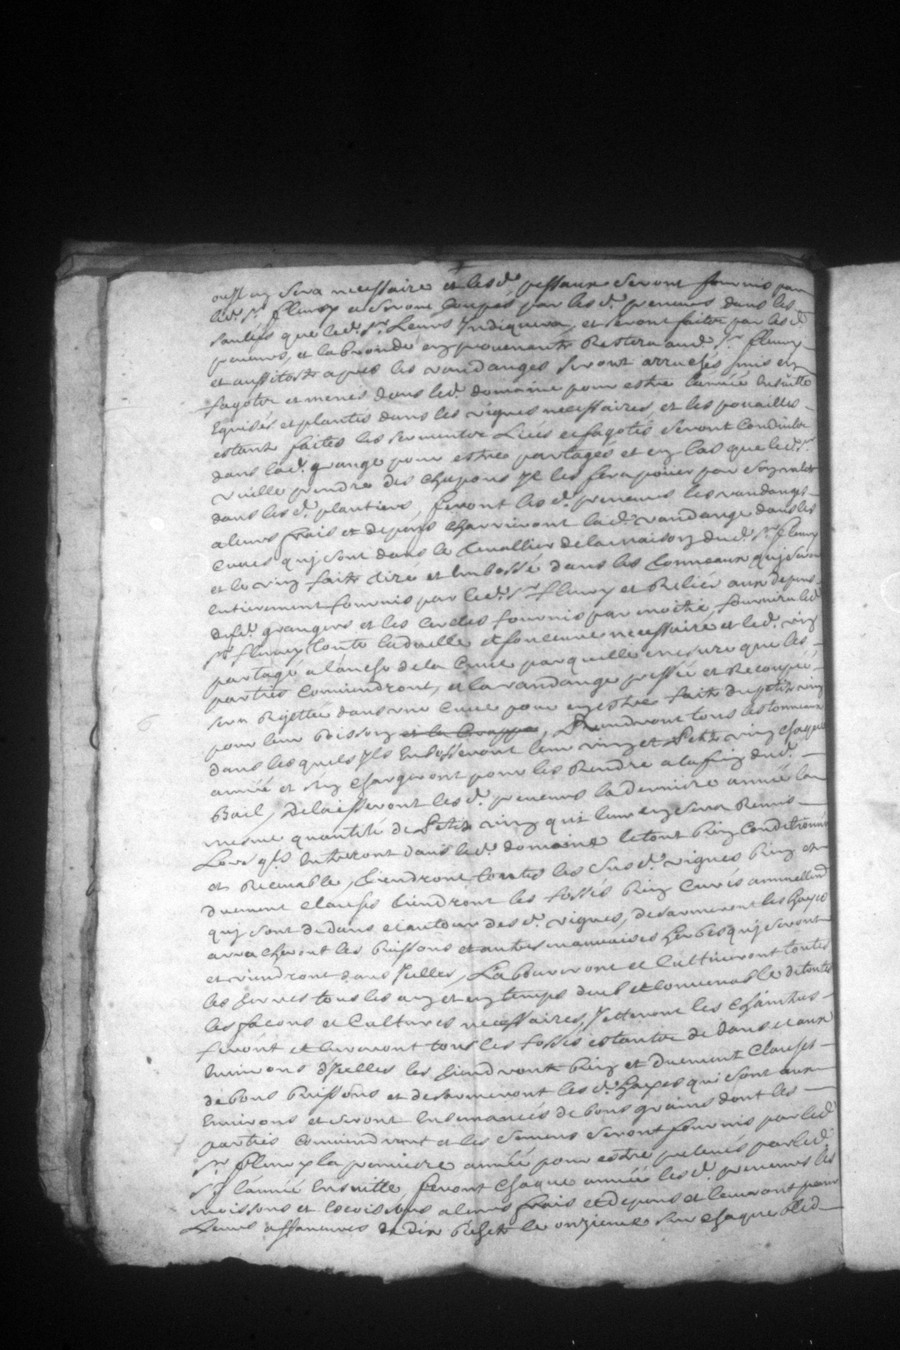 ou il en sera necessaire et lesd. pessaux seront fournis par
led. Sr. fleury et seront coupés par lesd. preneurs dans les
saulées que led. Sr. Leurs Indiquera, et seront faits par lesd.
preneurs, et la bronde en provenente Restera aud. Sr. fleury
et aussitost apres les vandanges seront arrachés mis en
fagotte et menés dans led. domaine pour estre l'année ensuitte
Eguisés et plantés dans les vignes necessaires, et les
estant faites les sermentes Liées et fagotés seront conduite
dans lad. grange pour estre partagés et en cas que led. Sr.
vuille prendre des chapons Il les fera poser par
dans lesd. plantiers, feront lesd. preneurs les vandanges
a leurs frais et depens charrieront lad. vandange dans les
Cuves qui sont dans le Cuvallier de la maison dud. Sr. fleury
et le vin faits tiré et Embossé dans les tonneaux qui seront
Entierement fournis par led. Sr. fleury et Reliée aux depens
desd. grangers et les cercles fournis par moitié, fournira led.
Sr. fleury toute la doelle et fonceure necessaire et led. vin
partagé a l'anche de la Cuve par quelle mesure que les
parties Conviendront, et la vandange pressée et Recoupée
sera Rejettée dans une Cuve pour en estre fait du petit vin
pour leur boisson et la Crappe, Prendront tous les tonneaux
dans lesquels Ils Embosseront leur vin et Petit vin chaque
année et s'en chargeront pour les Rendre a la fin dud.
Bail, delaisseront lesd. preneurs la derniere année la
mesme quantité de Petit vin qui leur en sera Remis
Lors qls. Entreront dans led. domaine le tout bien Conditionné
et Recevable, tiendront toutes les susd. vignes bien et
duement clauses tiendront les fossés bien Curés annuellement
qui sont dedans et autour desd. vignes, desarmeront les hayes
arracheront les buissons et autres mauvaises herbes qui seront
et viendront dans Icelles, Laboureront et Cultiveront toutes
les terres tous les ans et en temps deub et convenable de toutes
les façons et Cultures necessaires, Jetteront les Chaintres
feront et leveront tous les fossés estantes dedans et aux
Environs d'Icelles les tiendront bien et duement Clauses
de bons buissons et desarmeront lesd. hayes qui sont aux
Environs et seront Ensemancés de bons grains dont les
parties Conviendront et les semens seront fournis par led.
Sr. fleury la premiere année pour estre prelevés par led.
Sr. l'année Ensuitte, feront chaque année lesd. preneurs les
moissons et a leurs frais et depens et leveront pour
Leurs affanures de dix Bichet le onzieme sur chaque bled